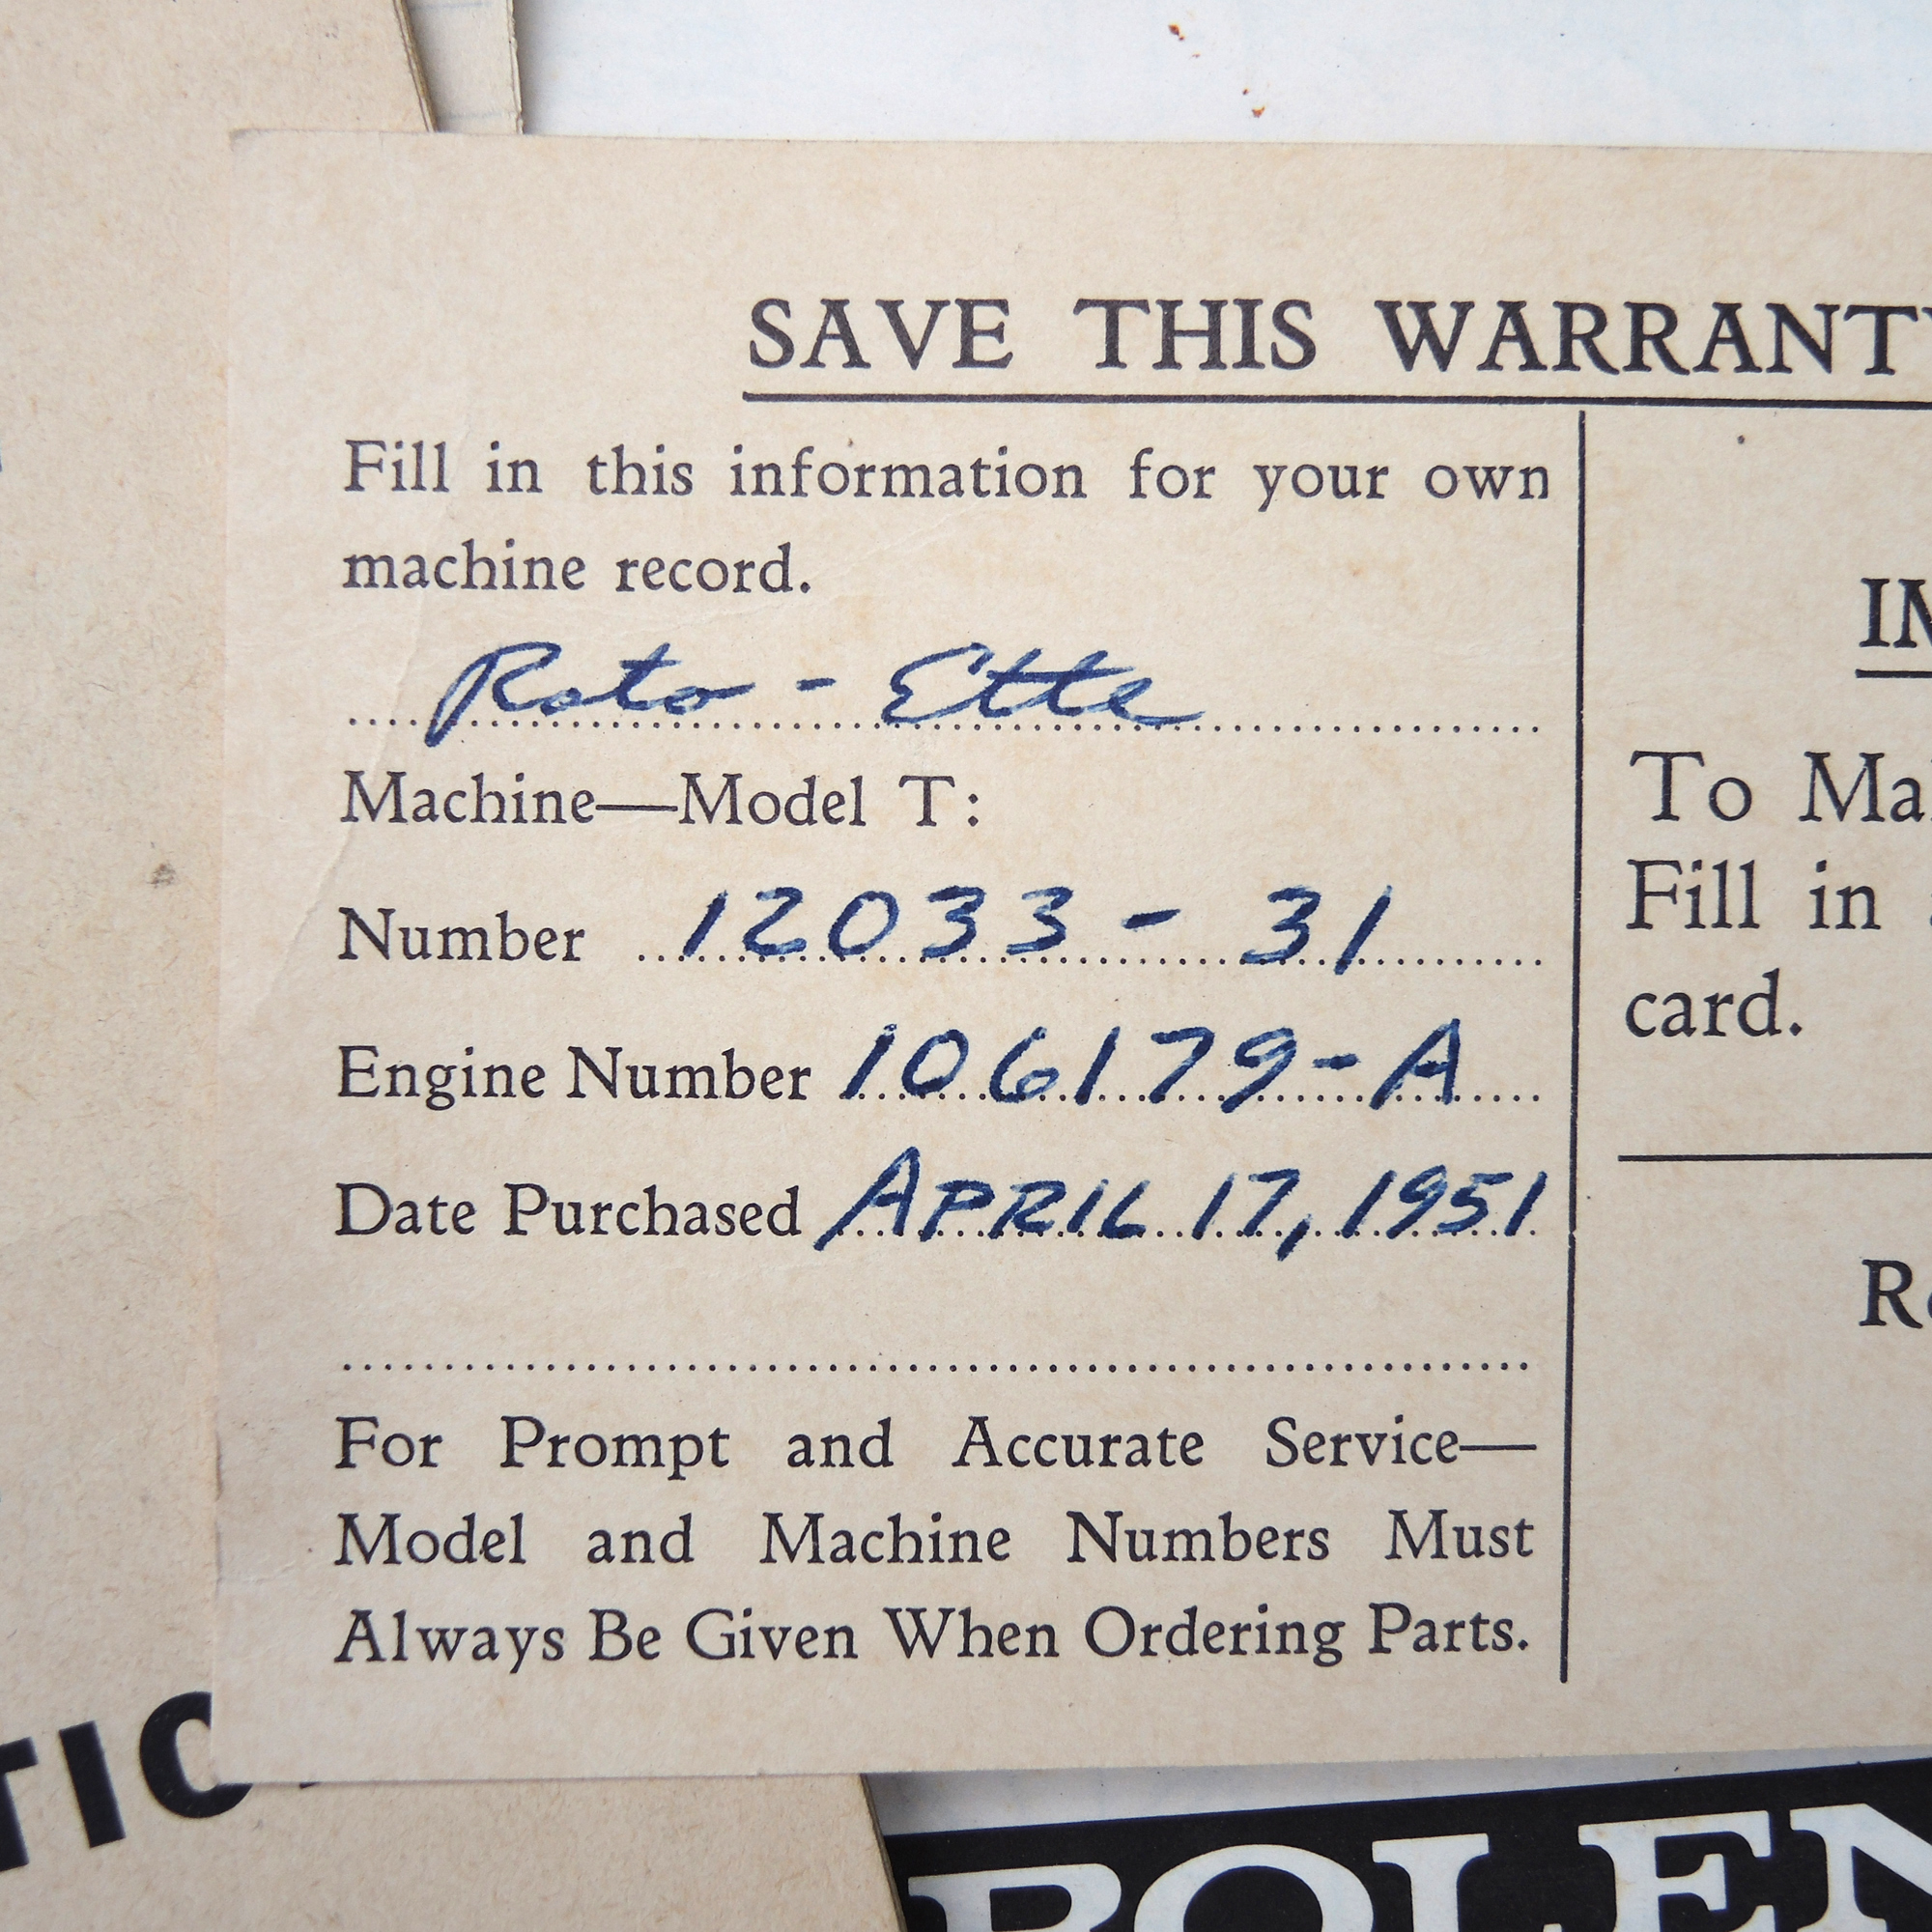 SAVE THIS WARRANTY
Fill in this information for your own
machine record.
Roto - Ette
Machine—Model T:
Number 12033 - 31
Engine Number 106179-A
Date Purchased APRIL 17, 1951
For Prompt and Accurate Service—
Model and Machine Numbers Must
Always Be Given When Ordering Parts.
To
Fill in
card.